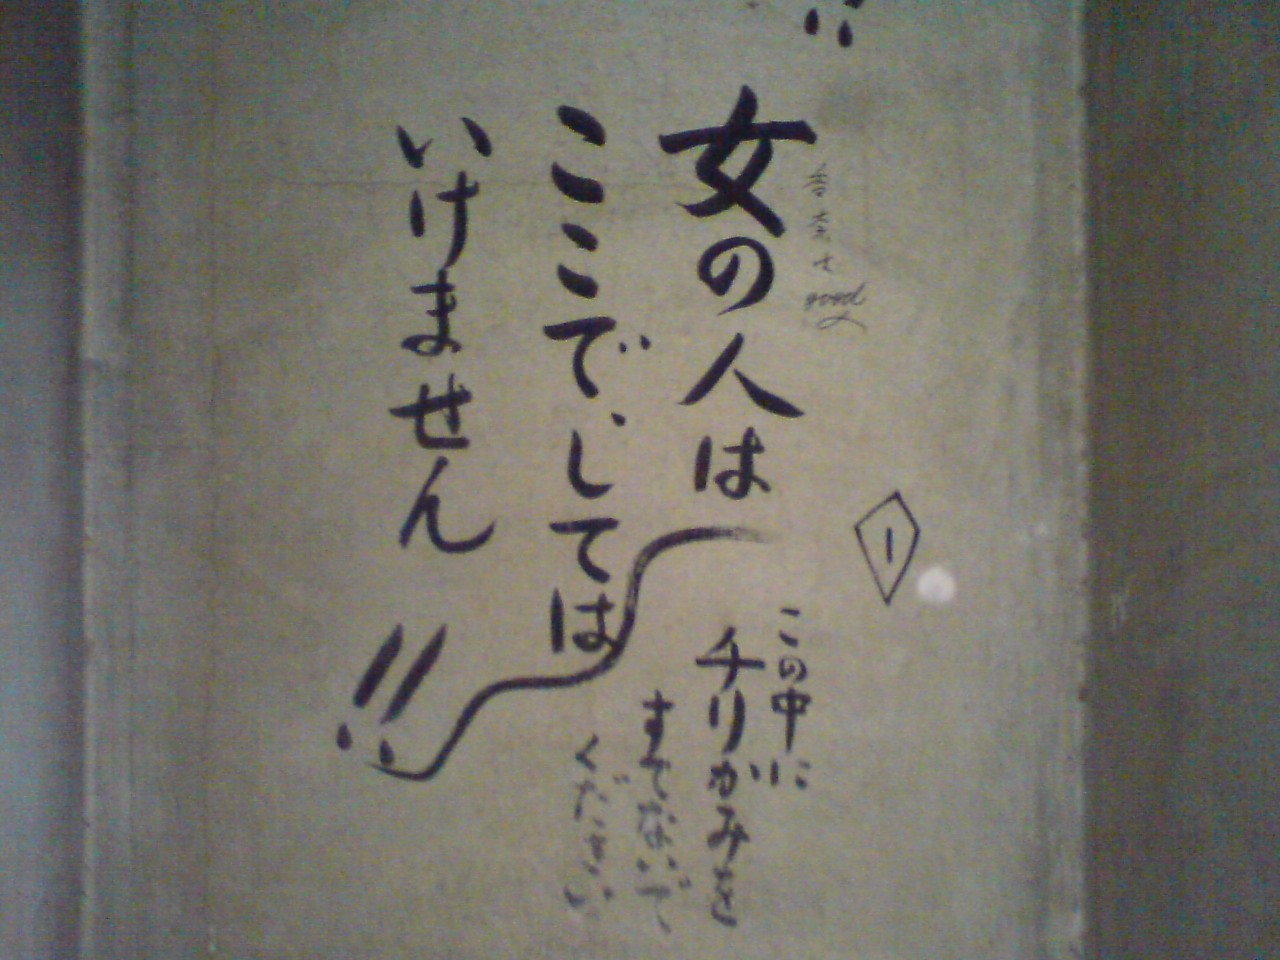 女の人は
ここで、しては
いけません!!
この中に
チリがみを
すてないで
ください
good
1